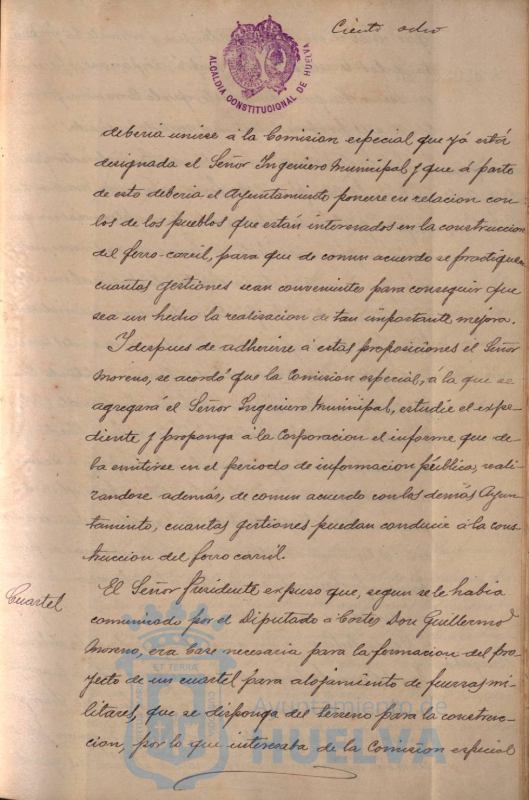 Ciento ocho
ALCALDIA CONSTITUCIONAL DE HUELVA
deberia unirse á la Comision especial que yá está
designada el Señor Ingeniero Municipal y que á parte
de esto deberia el Ayuntamiento ponerse en relacion con
los de los pueblos que están interesados en la construccion
del ferro-carril, para que de comun acuerdo se practiquen
cuantas gestiones sean convenientes para conseguir que
sea un hecho la realisacion de tan importante mejora.
Y despues de adherirse á estas proposiciones el Señor
Moreno, se acordó que la Comision especial, á la que se
agregará el Señor Ingeniero Municipal, estudie el expe-
diente y proponga á la Corporacion el informe que de-
ba emitirse en el periodo de informacion pública, reali-
zandose además, de comun acuerdo con los demás Ayun-
tamiento, cuantas gestiones puedan conducir á la cons-
truccion del ferro carril.
Cuartel
El Señor Presidente expuso que, segun se le habia
comunicado por el Diputado á Cortes Don Guillermo
Moreno, era base necesaria para la formacion del pro-
yecto de un cuartel para alojamiento de fuerzas mi-
litares, que se disponga del terreno para la construc-
cion, por lo que interesaba de la Comision especial
ET TERRA
Ayuntamiento de
HUELVA